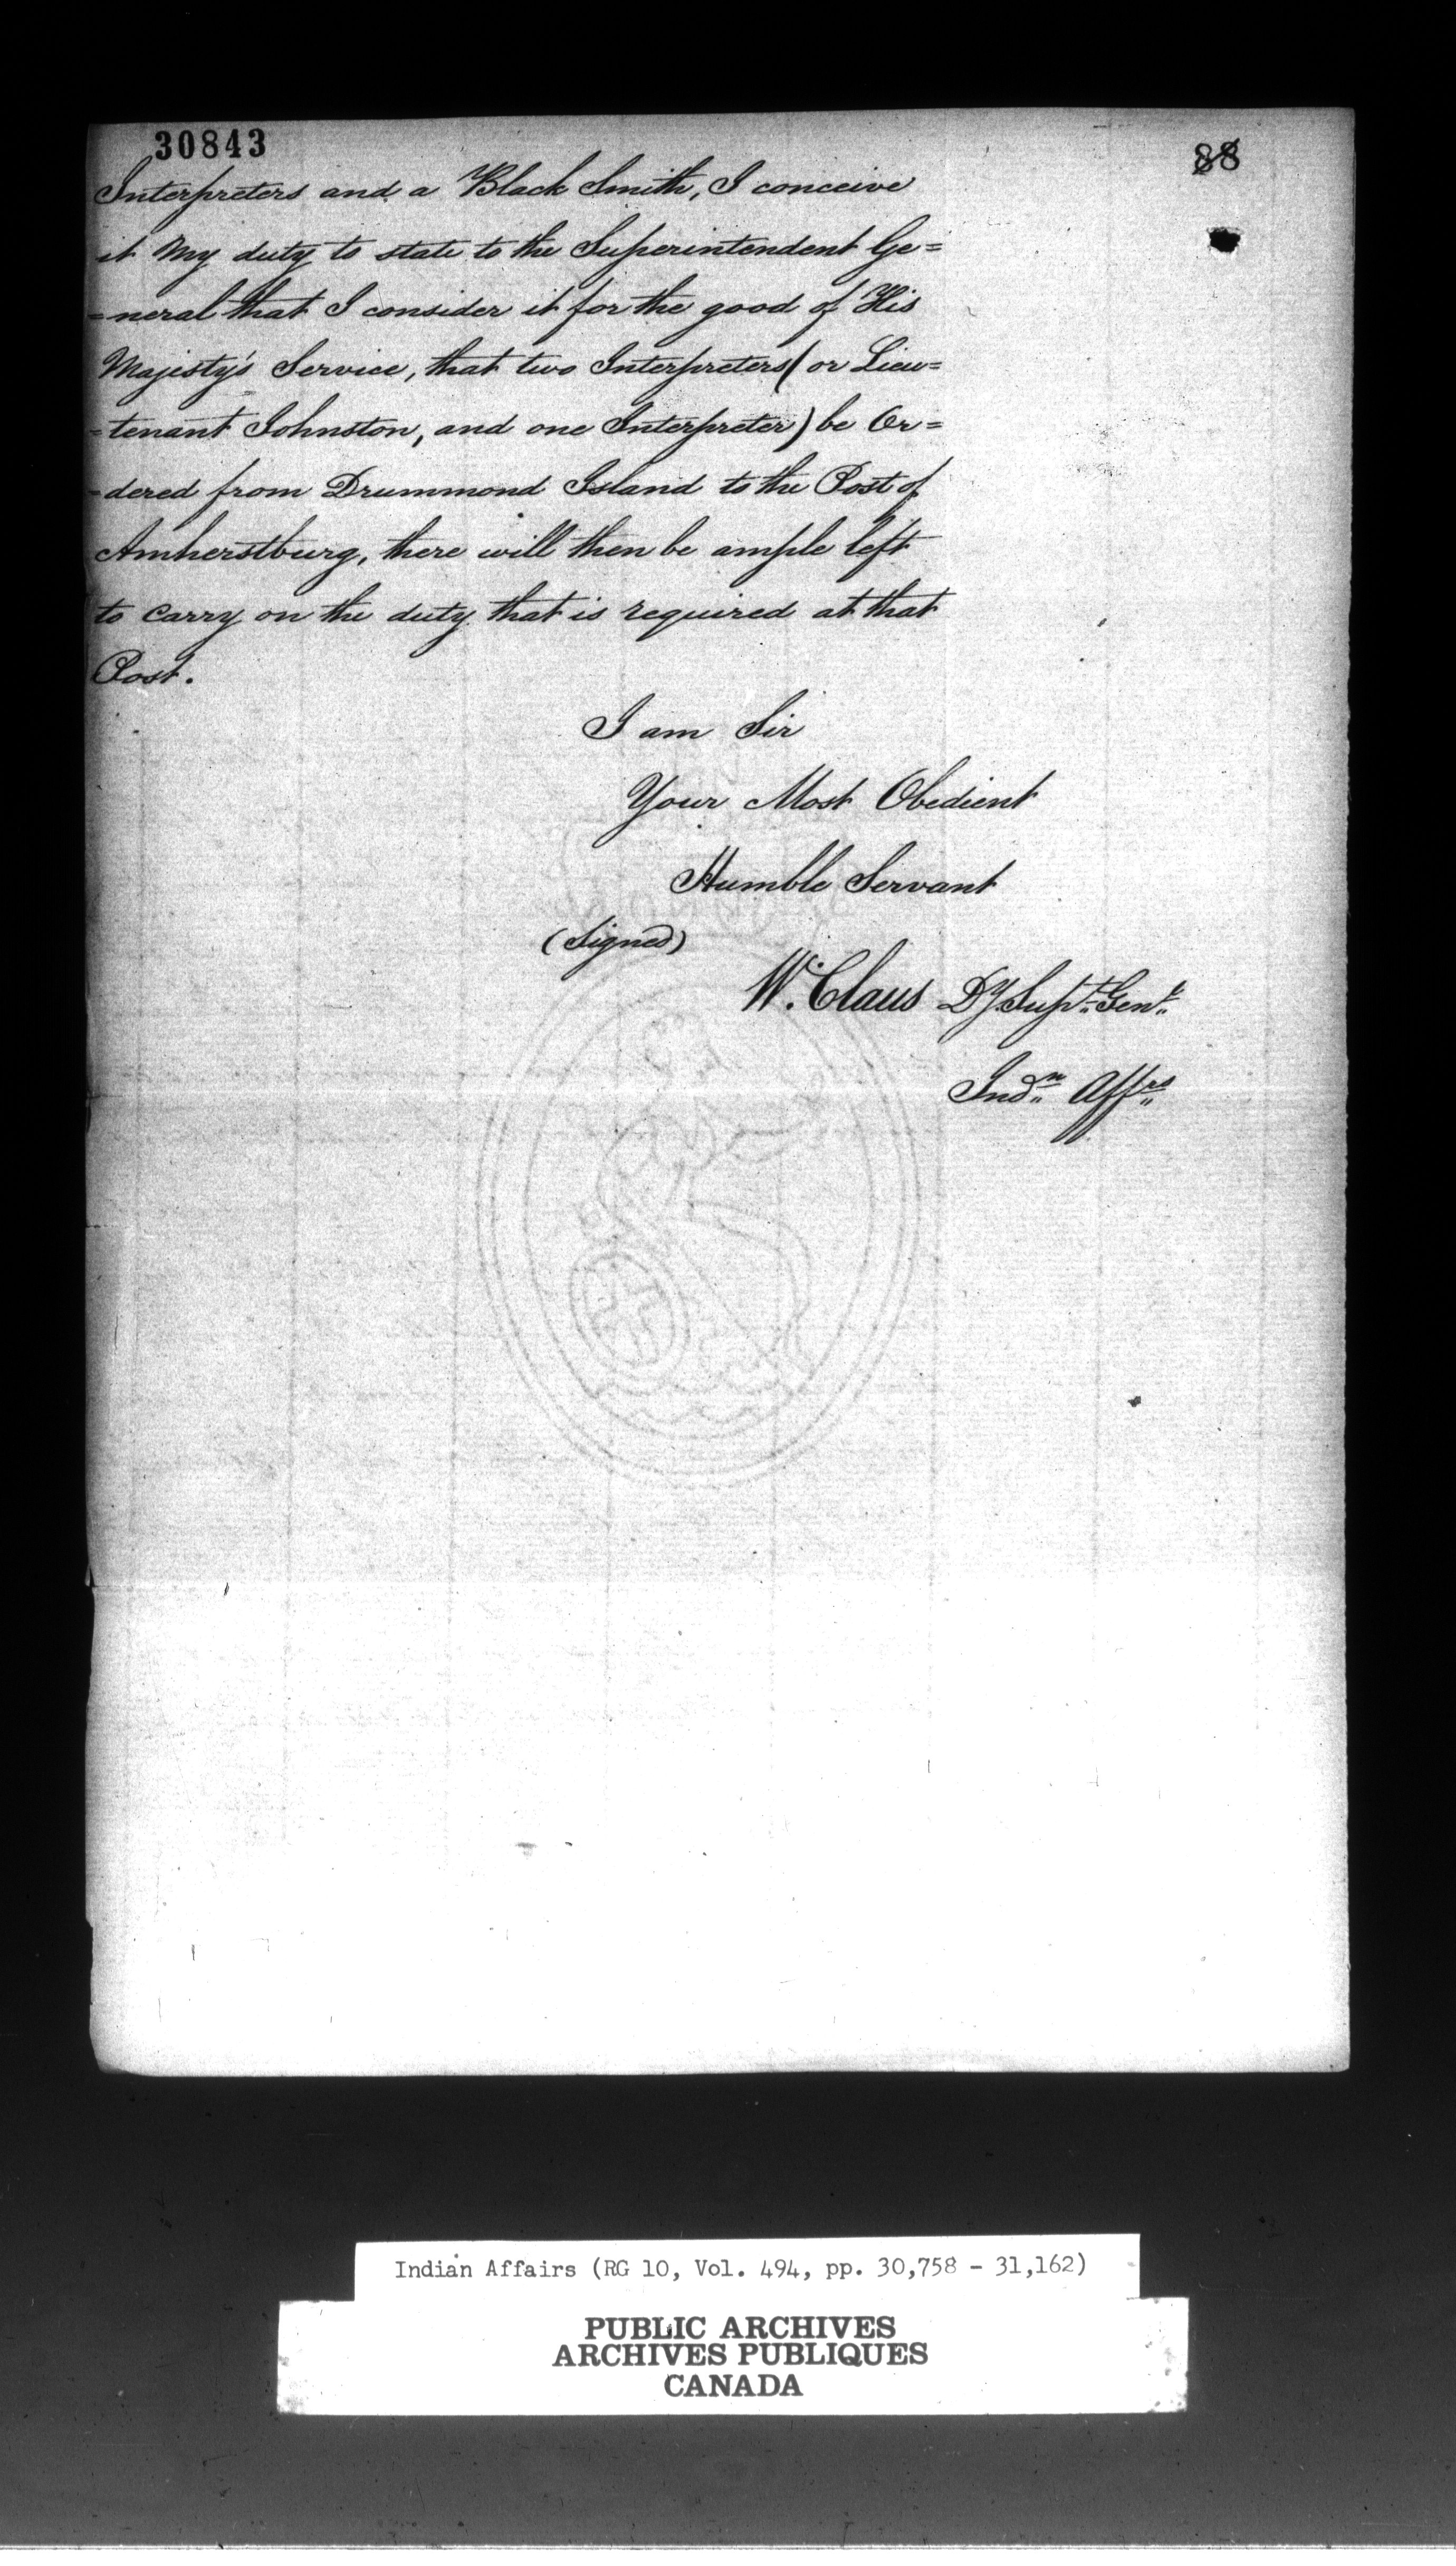 30843
88
Interpreters and a Black Smith, I conceive
it My duty to state to the Superintendent Ge=
=neral that I consider it for the good of His
Majesty's Service, that two Interpreters (or Lieu=
=tenant Johnston, and one Interpreter) be Or=
=dered from Drummond Island to the Post of
Amherstburg, there will then be ample left
to carry on the duty that is required at that
Post.
I am Sir
Your Most Obedient
Humble Servant
(Signed)
W. Claus Dy. Supt. Genl.
Indn. Affrs
Indian Affairs (RG 10, Vol. 494, pp. 30,758 - 31,162)
PUBLIC ARCHIVES
ARCHIVES PUBLIQUES
CANADA